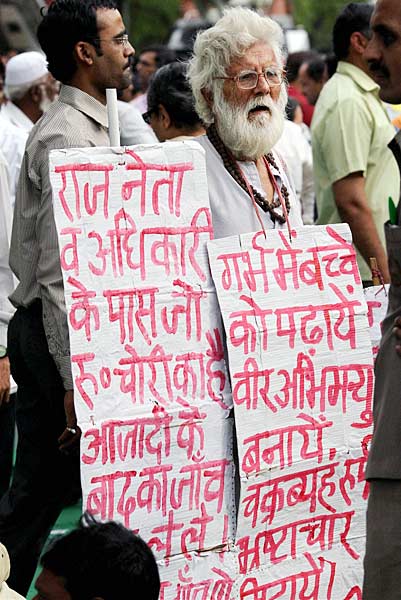 राज नेता
व अधिकारी
के पास जो
रु० चोरी का है
आजादी के
बाद का जाँच
गर्भ में बच्चे
को पढ़ायें
वीर अभिमन्यु
बनायें
चक्रब्यूह
भ्रष्टाचार